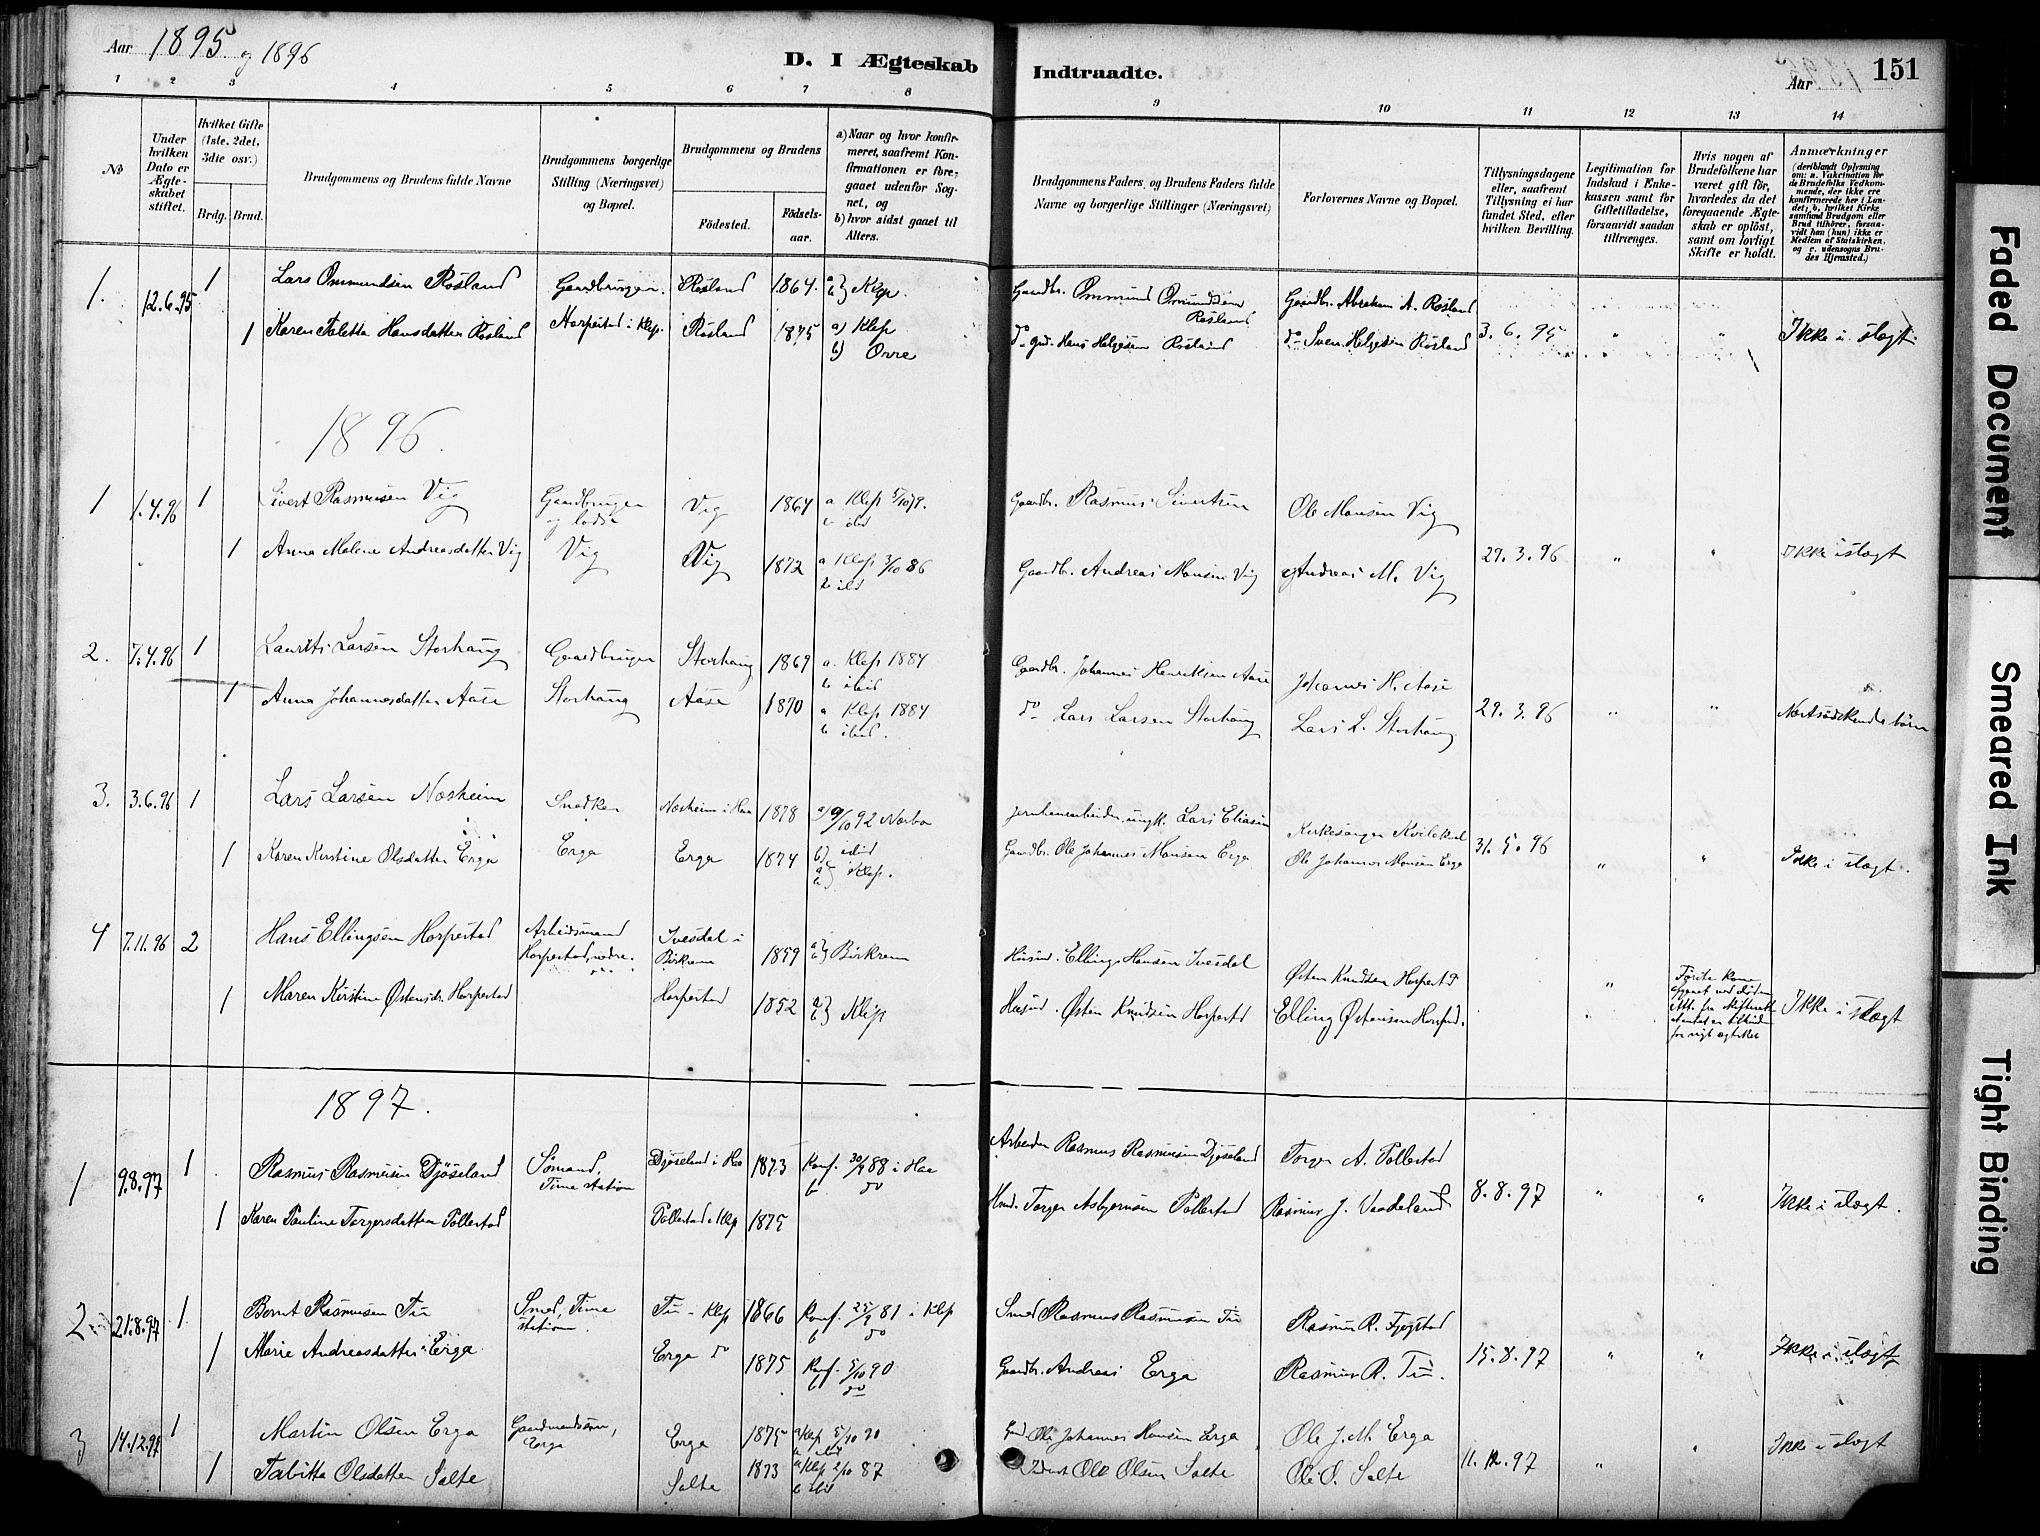 Aar 1895 og 1896
D. I Ægteskab Indtraadte.
Aar 151
1 2 3 4 5 6 7 8 9 10 11 12 13 14
No
Under hvilken Dato er Ægteskabet stiftet.
Hvilket Gifte (1ste, 2det, 3die osv.)
Brdg. Brud.
Brudgommens og Brudens fulde Navne
Brudgommens borgerlige Stilling (Næringsvei) og Bopæl.
Brudgommens og Brudens
Födested.
Födsels-aar.
a) Naar og hvor konfirmeret, saafremt Konfirmationen er foregaaet udenfor Sognet, og
b) hvor sidst gaaet til Alters.
Brudgommens Faders, og Brudens Faders fulde Navne og borgerlige Stillinger (Næringsvei)
Forlovernes Navne og Bopæl.
Tillysningsdagene eller, saafremt Tillysning ei har fundet Sted, efter hvilken Bevilling.
Legitimation for Indskud i Enkekassen samt for Giftetilladelse, forsaavidt saadan tiltrænges.
Hvis nogen af Brudefolkene har været gift för, hvorledes da det foregaaende Ægteskab er oplöst, samt om lovligt Skifte er holdt.
Anmærkninger
(deriblandt Oplysning om: a. Vakcination for de Brudefolks Vedkommende, der ikke ere konfirmerede her i Landet; b. hvilket Kirkesamfund Brudgom eller Brud tilhörer, forsaavidt han (hun) ikke er Medlem af Statskirken, og c. udensogns Brudes Hjemsted.)
1. 12.6.95 1 Lars Ommundsen Rosland Gaardbrugen. Rosland 1864. a) b) Klep. Gaardbr. Ommund Omundsen Rosland Gaardbr. Abraham A. Rosland
1 Karen Taletta Hansdatter Rosland Horpestad i Klep. Rosland 1875 a) Klep b) Orre do gud. Hans Helgesen Rosland do Sven Helgesen Rosland 3.6.95 " " Ikke i slægt.
1896.
1 1.4.96 1 Sivert Rasmusen Vig Gaardbruger og lods Vig 1864 a Klep 5/10 79. b ibid Gaardbr. Rasmus Sivertsen Ole Monsen Vig
1 Anna Malene Andreasdatter Vig Vig Vig 1872 a Klep 3/10 86 b ibd Gaardbr. Andreas Monsen Vig Andreas M. Vig 29.3.96 " " Ikke i slægt
2. 7.4.96 1 Laurits Larsen Storhaug Gaardbruger Storhaug 1869 a. Klep 1884 b ibid Gaardbr. Johannes Henriksen Aase Johannes H. Aase
1 Anna Johannesdatter Aase Storhaug Aase 1870 a Klep 1884 b ibid. do Lars Larsen Storhaug Lars L. Storhaug 29.3.96 " " Næstsödskendebörn
3. 3.6.96 1 Lars Larsen Nærheim Snedker Nærheim i Haa 1878 a) 9/10 92 Nærbö b) ibid jernbanearbeider, ungk. Lars Eliasen Kirkesanger Kvilekval
1 Karen Kirstine Olsdatter Erga Erga Erga 1874 a) b) Klep. Gaardbr. Ole Johannes Monsen Erga Ole Johannes Monsen Erga 31.5.96 " " Ikke i slægt.
4 7.11.96 2 Hans Ellingsen Horpestad Arbeidsmand Horpestad, nedre. Ivesdal i Birkrem 1859 a) b) Birkrem Husmd. Elling Hansen Ivesdal Østen Knudsen Horpestd
1 Maren Kirstine Østensdr. Horpestad Horpestad 1852 a) b) Klep Husmd. Østen Knudsen Horpestd Elling Østensen Horpestd. " Første kone Ikke i slægt
1897.
1 9.8.97 1 Rasmus Rasmusen Djöseland Sömand, Time station Djöseland i Haa 1873 Konf. 30/9 88 i Haa b do Arbeider Rasmus Rasmusen Djöseland Torger A. Pollestad
1 Karen Pauline Torgersdatter Pollestad Pollestad i Klep 1875 Husmd. Torger Asbjörnsen Pollestad Rasmus J. Vaadeland 8.8.97 " " Ikke i slægt.
2 21.8.97 1 Bernt Rasmusen Tu Smed, Time station. Tu - Klep 1866 Konf. 25/9 81 i Klep b do Smed Rasmus Rasmusen Tu Rasmus R. Fjogstad
1 Marie Andreasdatter Erga. Erga do 1875 Konf. 5/10 90 b do Gaardbr. Andreas Erga Rasmus R. Tu. 15.8.97 " " Ikke i slægt
3 14.12.97 1 Martin Olsen Erga Gaardmandssön, Erga Erga 1875 a Klep 5/10 90 b ibid Gmd. Ole Johannes Monsen Erga Ole J. M. Erga
1 Tabitta Olsdatter Salte Salte 1873 a Klep 2/10 87 b ibid Ole Olsen Salte Ole O. Salte 11.12.97 " " Ikke i slægt
Faded Document
Smeared Ink
Tight Binding